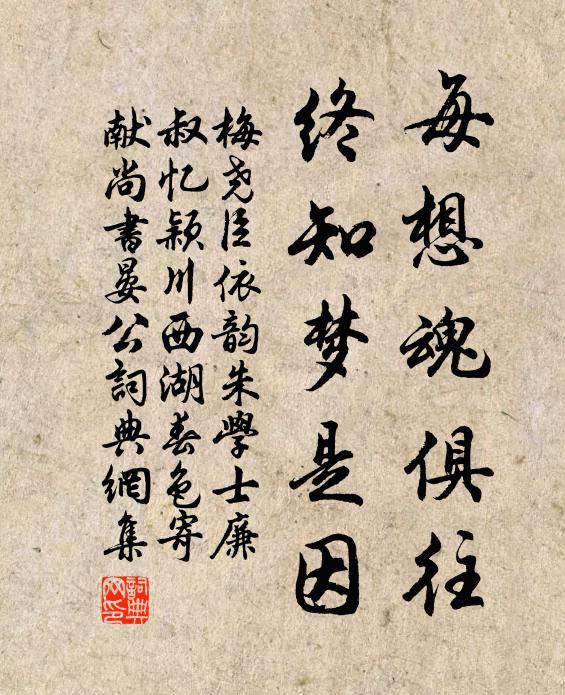 每想魂俱往
终知梦是因
梅尧臣依韵朱學士廉
叔忆颍川西湖春色寄
献尚書晏公詞典網集
詞典網印